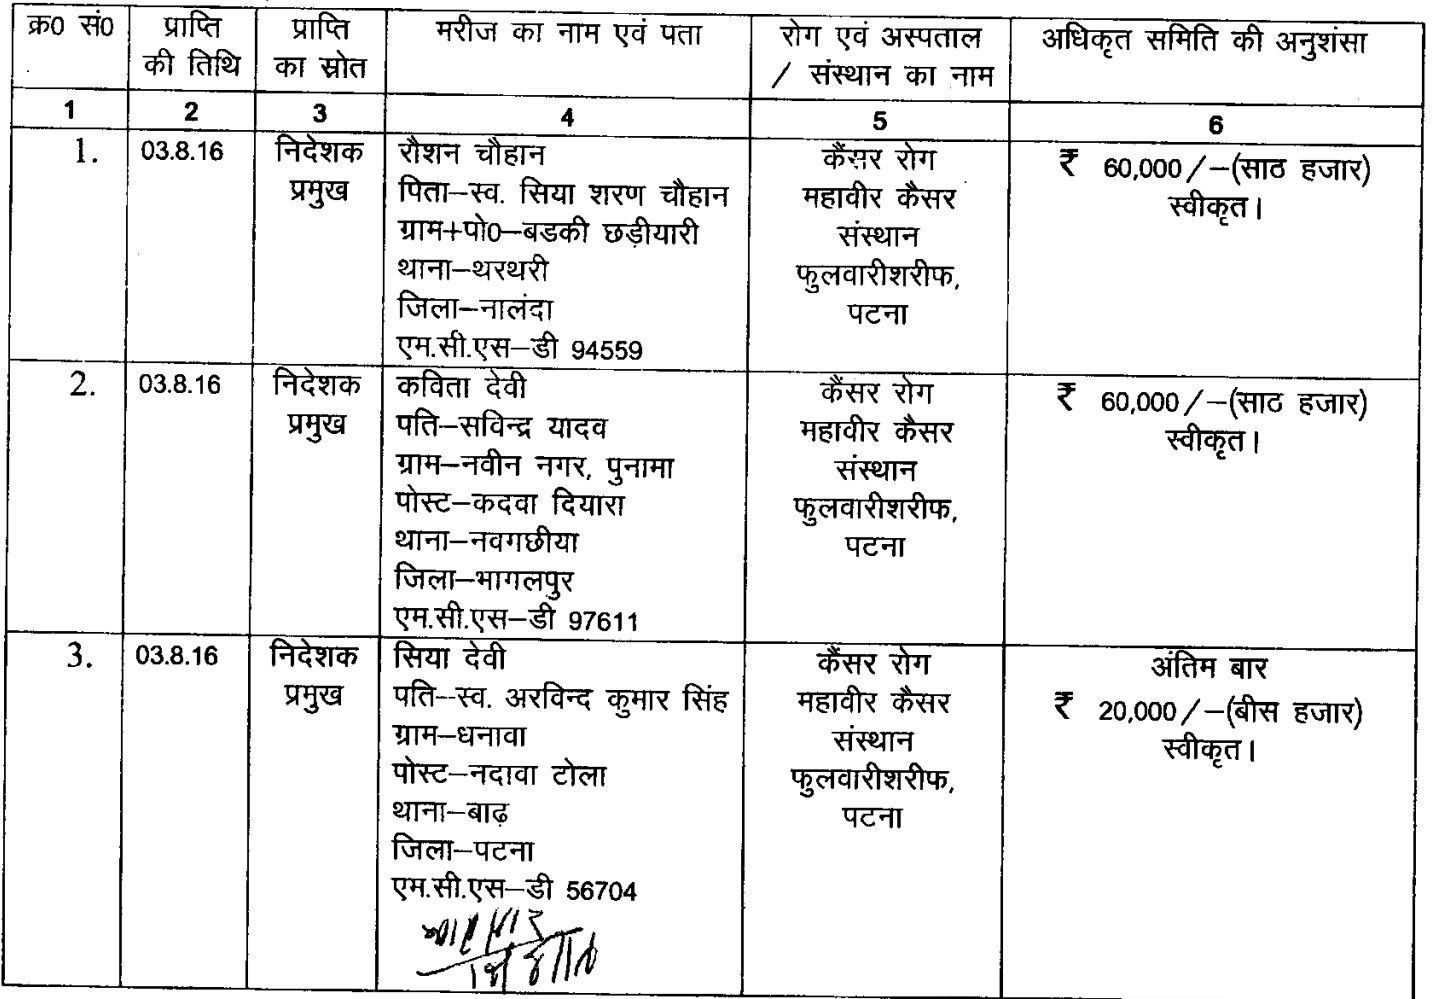 क्र0 सं0
प्राप्ति
की तिथि
प्राप्ति
का स्रोत
मरीज का नाम एवं पता
रोग एवं अस्पताल
/ संस्थान का नाम
अधिकृत समिति की अनुशंसा
1
2
3
4
5
6
1.
03.8.16
निदेशक
प्रमुख
रौशन चौहान
पिता–स्व. सिया शरण चौहान
ग्राम+पो0–बडकी छड़ीयारी
थाना–थरथरी
जिला–नालंदा
एम.सी.एस–डी 94559
कैंसर रोग
महावीर कैसर
संस्थान
फुलवारीशरीफ,
पटना
₹ 60,000/–(साठ हजार)
स्वीकृत।
2.
03.8.16
निदेशक
प्रमुख
कविता देवी
पति–सविन्द्र यादव
ग्राम–नवीन नगर, पुनामा
पोस्ट–कदवा दियारा
थाना–नवगछीया
जिला–भागलपुर
एम.सी.एस–डी 97611
कैंसर रोग
महावीर कैसर
संस्थान
फुलवारीशरीफ,
पटना
₹ 60,000/–(साठ हजार)
स्वीकृत।
3.
03.8.16
निदेशक
प्रमुख
सिया देवी
पति–स्व. अरविन्द कुमार सिंह
ग्राम–धनावा
पोस्ट–नदावा टोला
थाना–बाढ़
जिला–पटना
एम.सी.एस–डी 56704
कैंसर रोग
महावीर कैसर
संस्थान
फुलवारीशरीफ,
पटना
अंतिम बार
₹ 20,000/–(बीस हजार)
स्वीकृत।